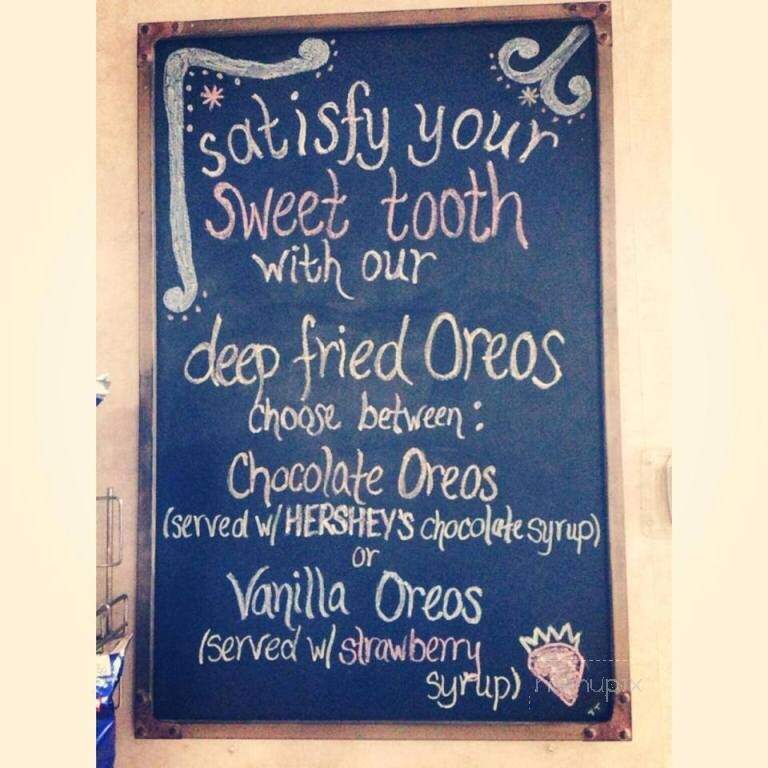 satisfy your
sweet tooth
with our
deep fried Oreos
choose between:
Chocolate Oreos
(served w/ HERSHEY'S chocolate syrup)
or
Vanilla Oreos
(served w/ strawberry
syrup)
menupix